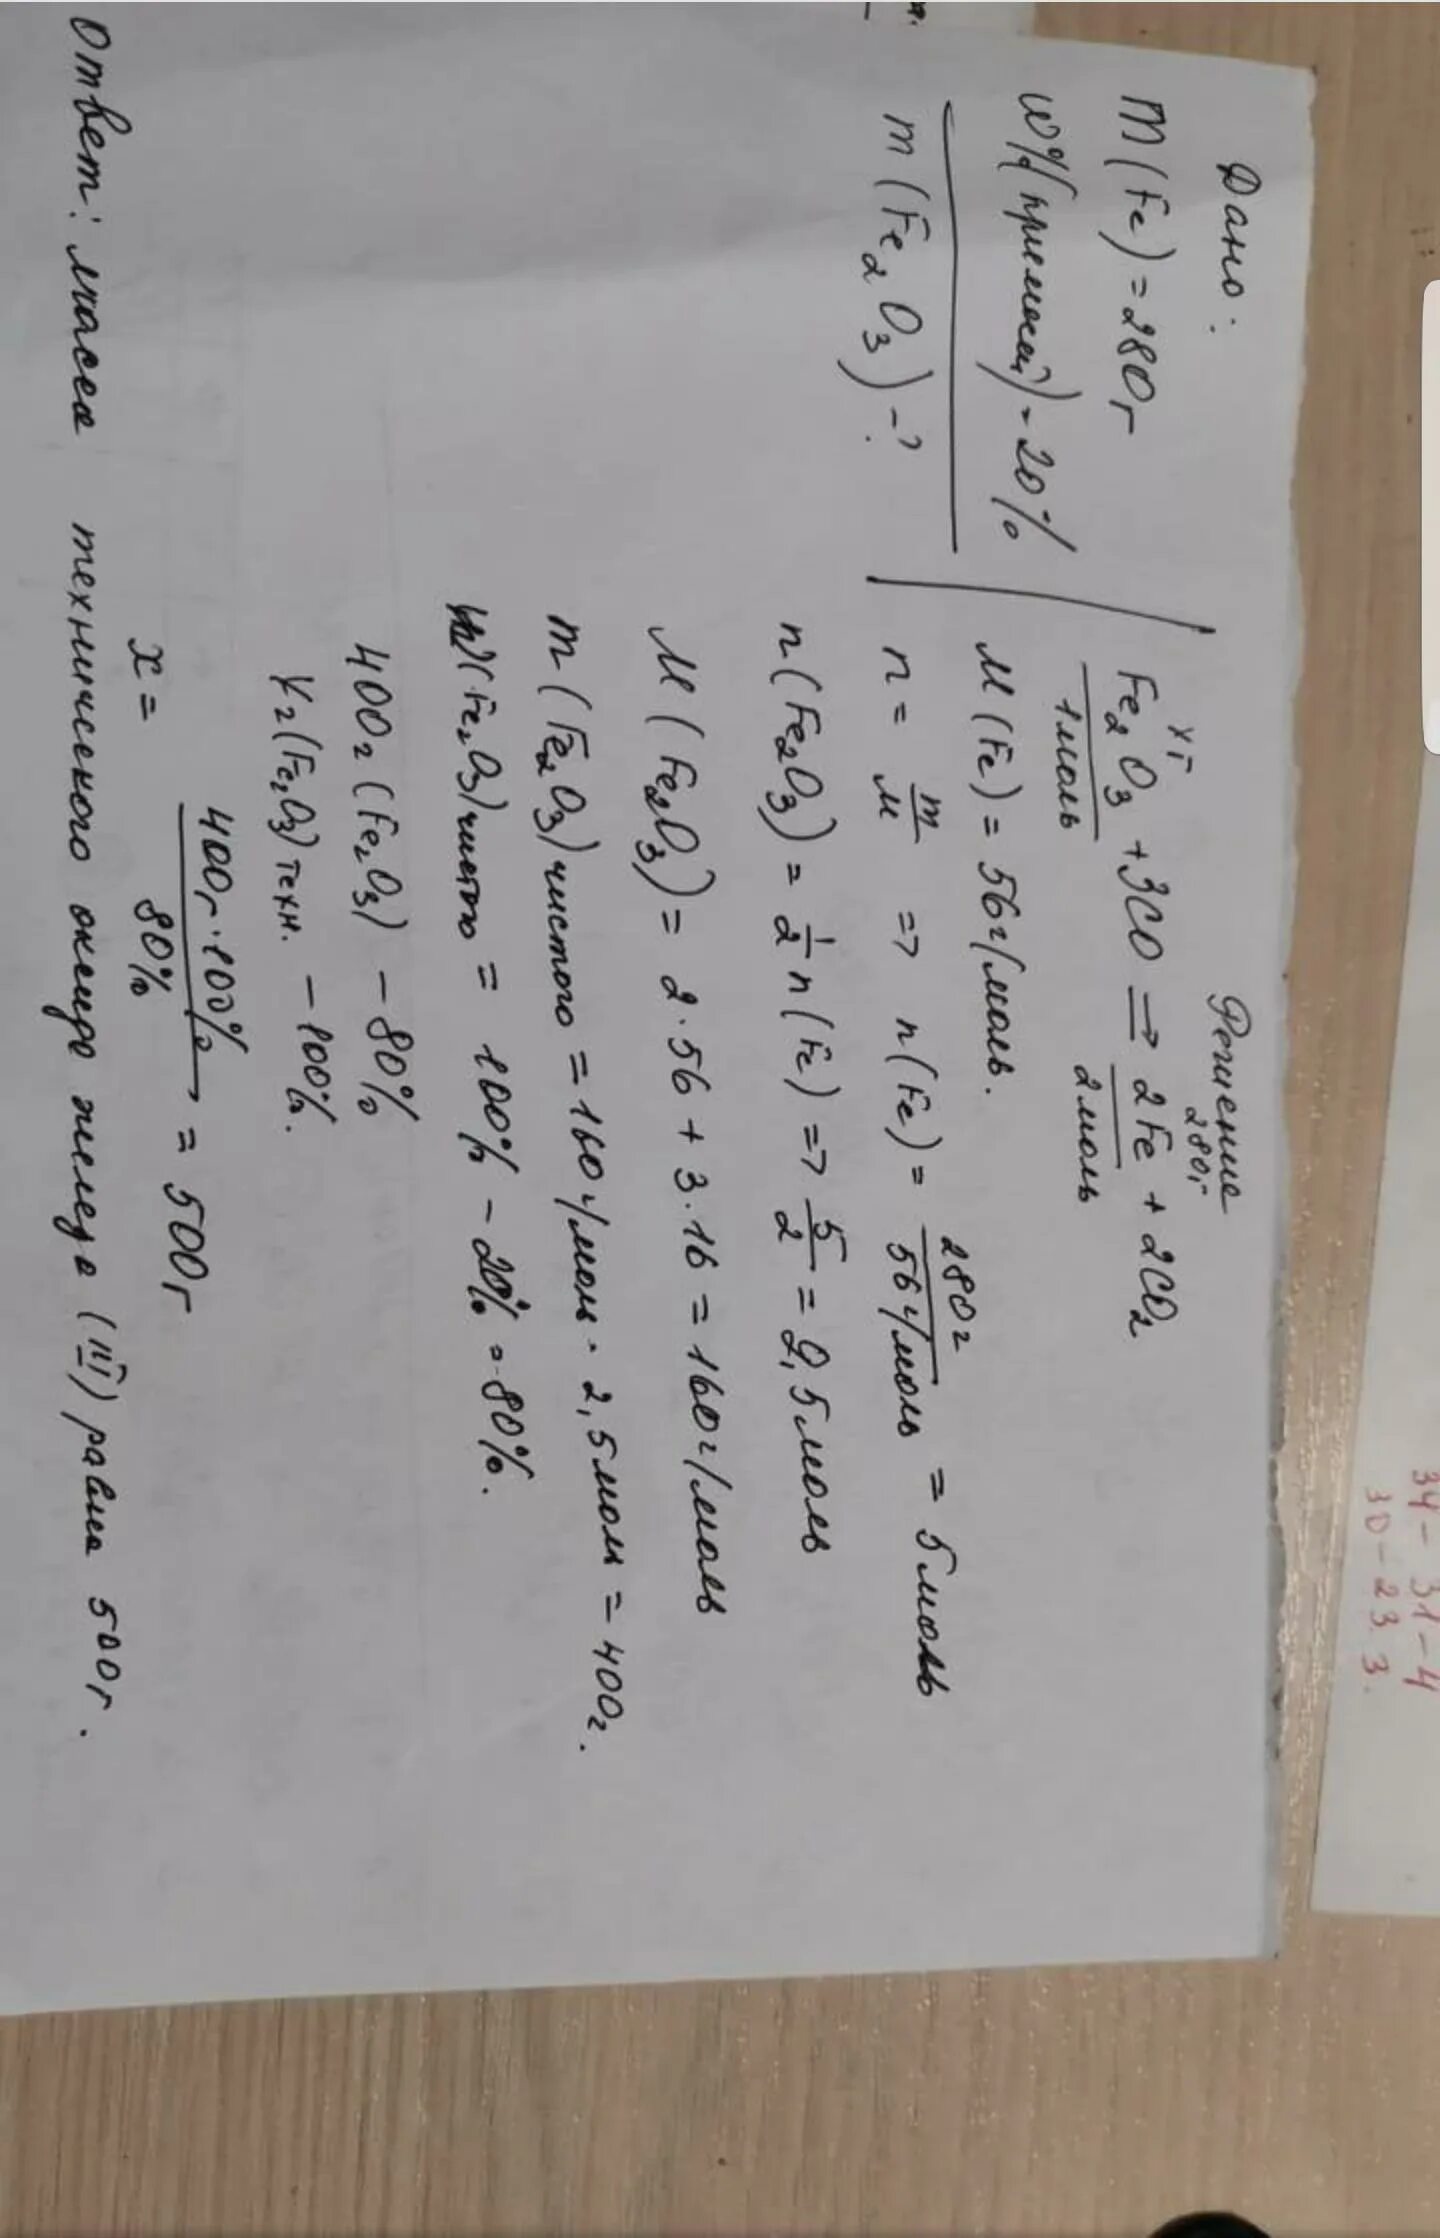 Дано:
m(Fe)=280г
W%(примесей)=20%
m(Fe₂O₃)-?
Решение
xг 280г
Fe₂O₃+3CO⇒2Fe+2CO₂
1моль 2моль
M(Fe)=56г/моль.
n=m/M => n(Fe)=280г/56г/моль=5моль
n(Fe₂O₃)=1/2n(Fe)=>5/2=2,5моль
M(Fe₂O₃)=2·56+3·16=160г/моль
m(Fe₂O₃)чистого=160г/моль·2,5моль=400г.
(Fe₂O₃)чистого=100%-20%=80%.
400г(Fe₂O₃)-80%
Xг(Fe₂O₃)техн.-100%.
x=400г·100%/80%=500г
Ответ: масса технического оксида железа (III) равна 500г.
34-31-4
30-23 3.